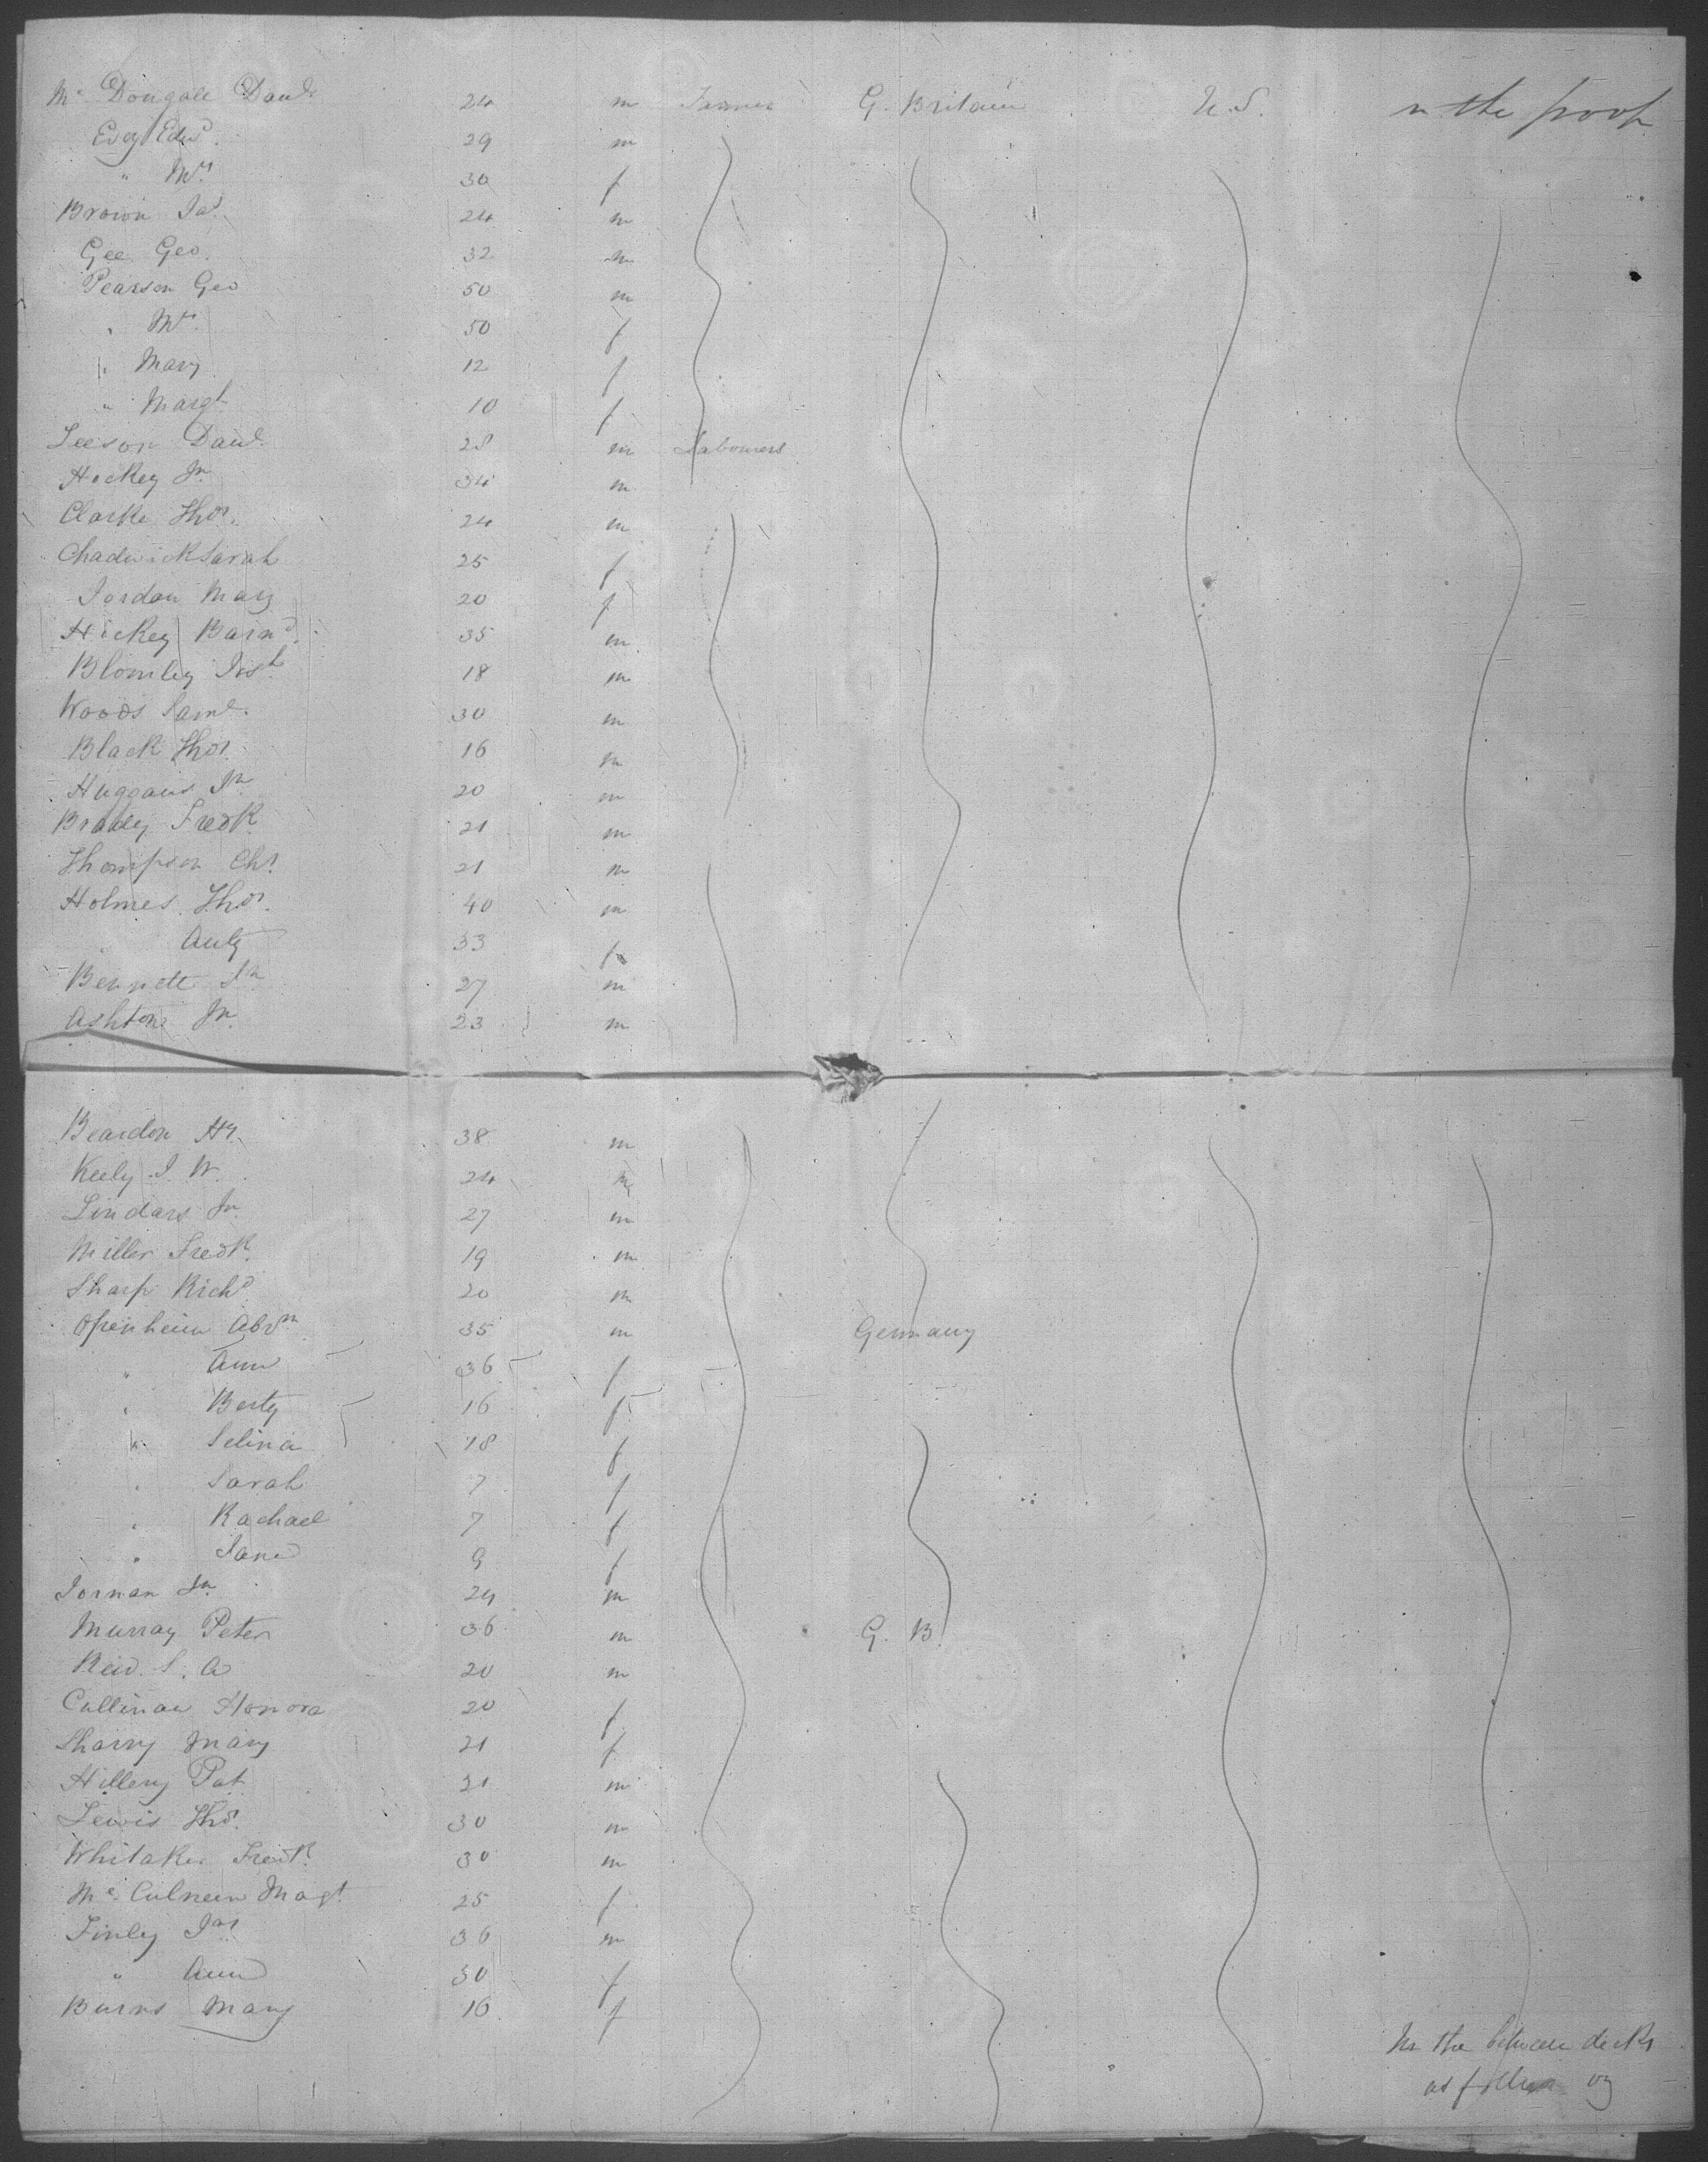 Mc Dougall Danl 24 m Farmer G. Britain U.S. in the poop
Edwd. 29 m
" Mrs 30 f
Brown Jas 24 m
Gee Geo. 32 m
Pearson Geo 50 m
" Mrs. 50 f
" Mary 12 f
" Margt 10 f
Leeson Danl. 28 m Labourers
Hickey Jn 34 m
Clarke Thos. 24 m
Chadwick Sarah 25 f
Jordan Mary 20 f
Hickey Barnd. 35 m
Blomley Josh 18 m
Woods Saml. 30 m
Black Thos. 16 m
Huggans Jn 20 m
Brady Fredk 21 m
Thompson Chs. 21 m
Holmes Thos. 40 m
33 f
Bennett Jn 27 m
Ashton Jn. 23 m
Beardon Hy. 38 m
Keely J. W. 24 m
Lindars Jn 27 m
Miller Fredk. 19 m
Sharp Richd 20 m
Openheim Abrm 35 m Germany
" Ann 36 f
" Betsy 16 f
" Selina 18 f
" Sarah 7 f
" Rachael 7 f
" Jane 9 f
Jn 24 m
Murray Peter 36 m G. B.
Reid. S. A 20 m
Cullinan Honora 20 f
Sharry Mary 21 f
Hillery Pat 21 m
Lewis Thos. 30 m
Whitaker Fredk. 30 m
Mc Culneen Magt 25 f
Finley Jas 36 m
" Ann 30 f
Burns Mary 16 f
In the between decks
as follows vz